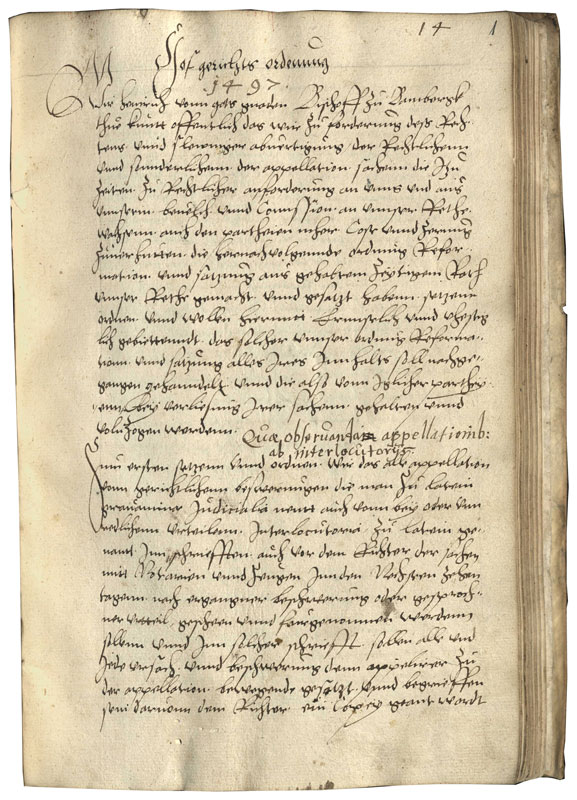 14 1
Hofgerichts ordenung
1497
Wir Heinrich vonn gots gnaden Bischoff zu Bamberg
thue kunt offentlich das wir zu forderung des Rech
tens vnnd abuertigung der Rechtlichenn
vnnd sonnderlichenn der appellation sachenn die zu
zeiten zu Rechtlicher anforderung an vnns vnd aus
vnnserm beuelch vnnd Comission an vnnser Rethe
wachsenn auch den partheien mehrer Cost vnnd Zerung
zuuerhutten die hernachvolgennde ordnung Refor
mation vnnd satzung aus gehabtem zeytigem Rath
vnnser Rethe gemacht vnnd gesatzt habenn setzenn
ordnen vnnd wollen hiermit vnnd vhestig
lich gebiettenndt das solcher vnnser ordnung Reforma
tionn vnnd satzung alles Ires Innhalts soll nachge
gangen gehanndelt vnnd die also vonn Iglicher parthey
enn bey verliesung Irer sachenn gehalten vnnd
volnzogen werdenn
Quæ observanda appellationib:
ab interlocutorijs
Zum ersten setzenn vnnd ordnen wir das alle appellation
vonn gerichtlichenn beschwerungen die man zu latein
grauamina Judicialia nennt auch vonn bey oder vnn
redlichenn vrteilenn Interlocutoria zu latein ge
nannt Inn schriefften auch vor dem Richter der sachen
mit Notarien vnnd zeugen Inn den Nechsten zehen
tagenn nach ergangner beschwerung oder gesproch
ner vrteil gescheen vnnd furgenommen werdenn
sollenn vnnd Inn solcher schriefft sollen alle vnd
Jede vrsach vnnd beschwerung denn appelirer zu
der appellation bewegende gesatzt vnnd begrieffen
sein dauonn dem Richter ein Copey geantwordt